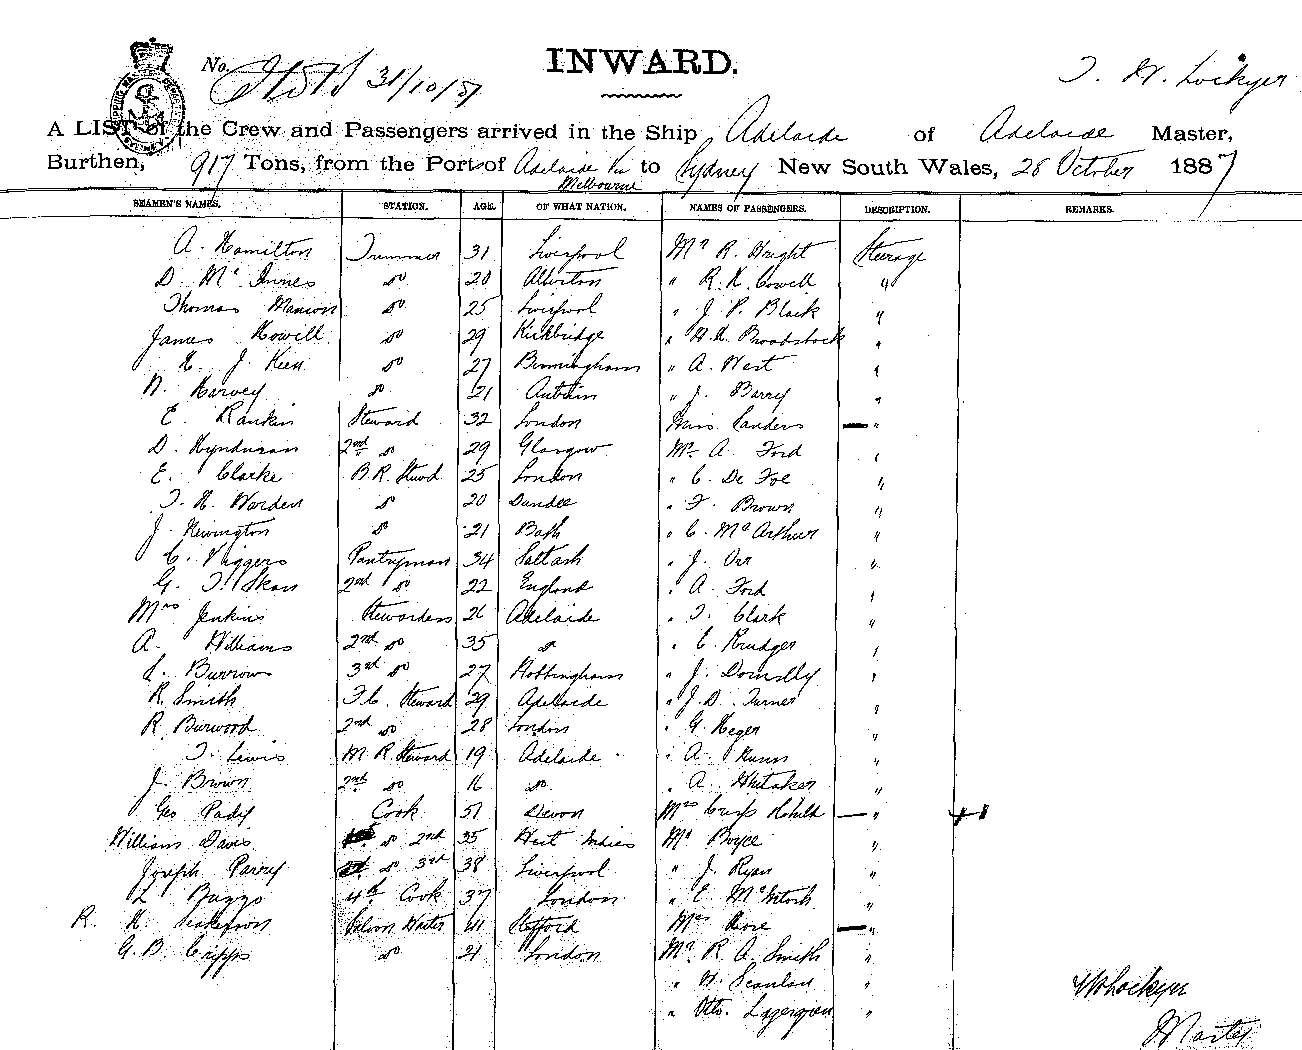 INWARD.
No. 31/10/87
A LIST of the Crew and Passengers arrived in the Ship Adelaide of Adelaide Master,
Burthen, 917 Tons, from the Port of Adelaide via Melbourne to Sydney New South Wales, 28 October 1887
SEAMEN'S NAMES. STATION. AGE. OF WHAT NATION. NAMES OF PASSENGERS. DESCRIPTION. REMARKS.
A. Hamilton Trimmer 31 Liverpool Mr R. Wright Steerage
D. Mc Innes do 20 Alberton " R. H. Cowell "
Thomas Manson do 25 Liverpool " J. P. Black "
James Howell do 29 Kirkbridge " "
H. J. Keen do 27 Birmingham " A. West "
N. Harvey do 21 " J. Barry "
E. Rankin Steward 32 London Miss Sanders "
D. 2nd do 29 Glasgow Mr A. Ford "
E. Clarke B. R. Stwd 25 London " C. De Foe "
T. H. Worden do 20 Dundee " F. Brown "
J. Newington do 21 Bath " C. McArthur "
C. Viggers Pantryman 34 Saltash " J. Orr "
G. T. 2nd do 22 England " A. Ford "
Mrs Jenkins Stewardess 26 Adelaide " T. Clark "
A. Williams 2nd do 35 do " C. Krudger "
Burrows 3rd do 27 Nottingham " J. Donnelly "
R. Smith F. C. Steward 29 Adelaide " J. D. Turner "
R. Burwood 2nd do 28 London " G. Heger "
T. Lewis M R Steward 19 Adelaide " A. "
J. Brown 2nd do 16 do " A. Whitaker "
Geo Pady Cook 51 Devon Mrs "
William Davis do 2nd 35 West Indies Mr Boyce "
Joseph Parry do 3rd 38 Liverpool " J. Ryan "
Baggs 4th Cook 37 London " E. McIntosh "
R. H. Saloon Waiter 41 Mrs "
G. B. Cripps do 21 London Mr R. A. Smith "
" Scanlan "
" Otto "
Lockyer
Master